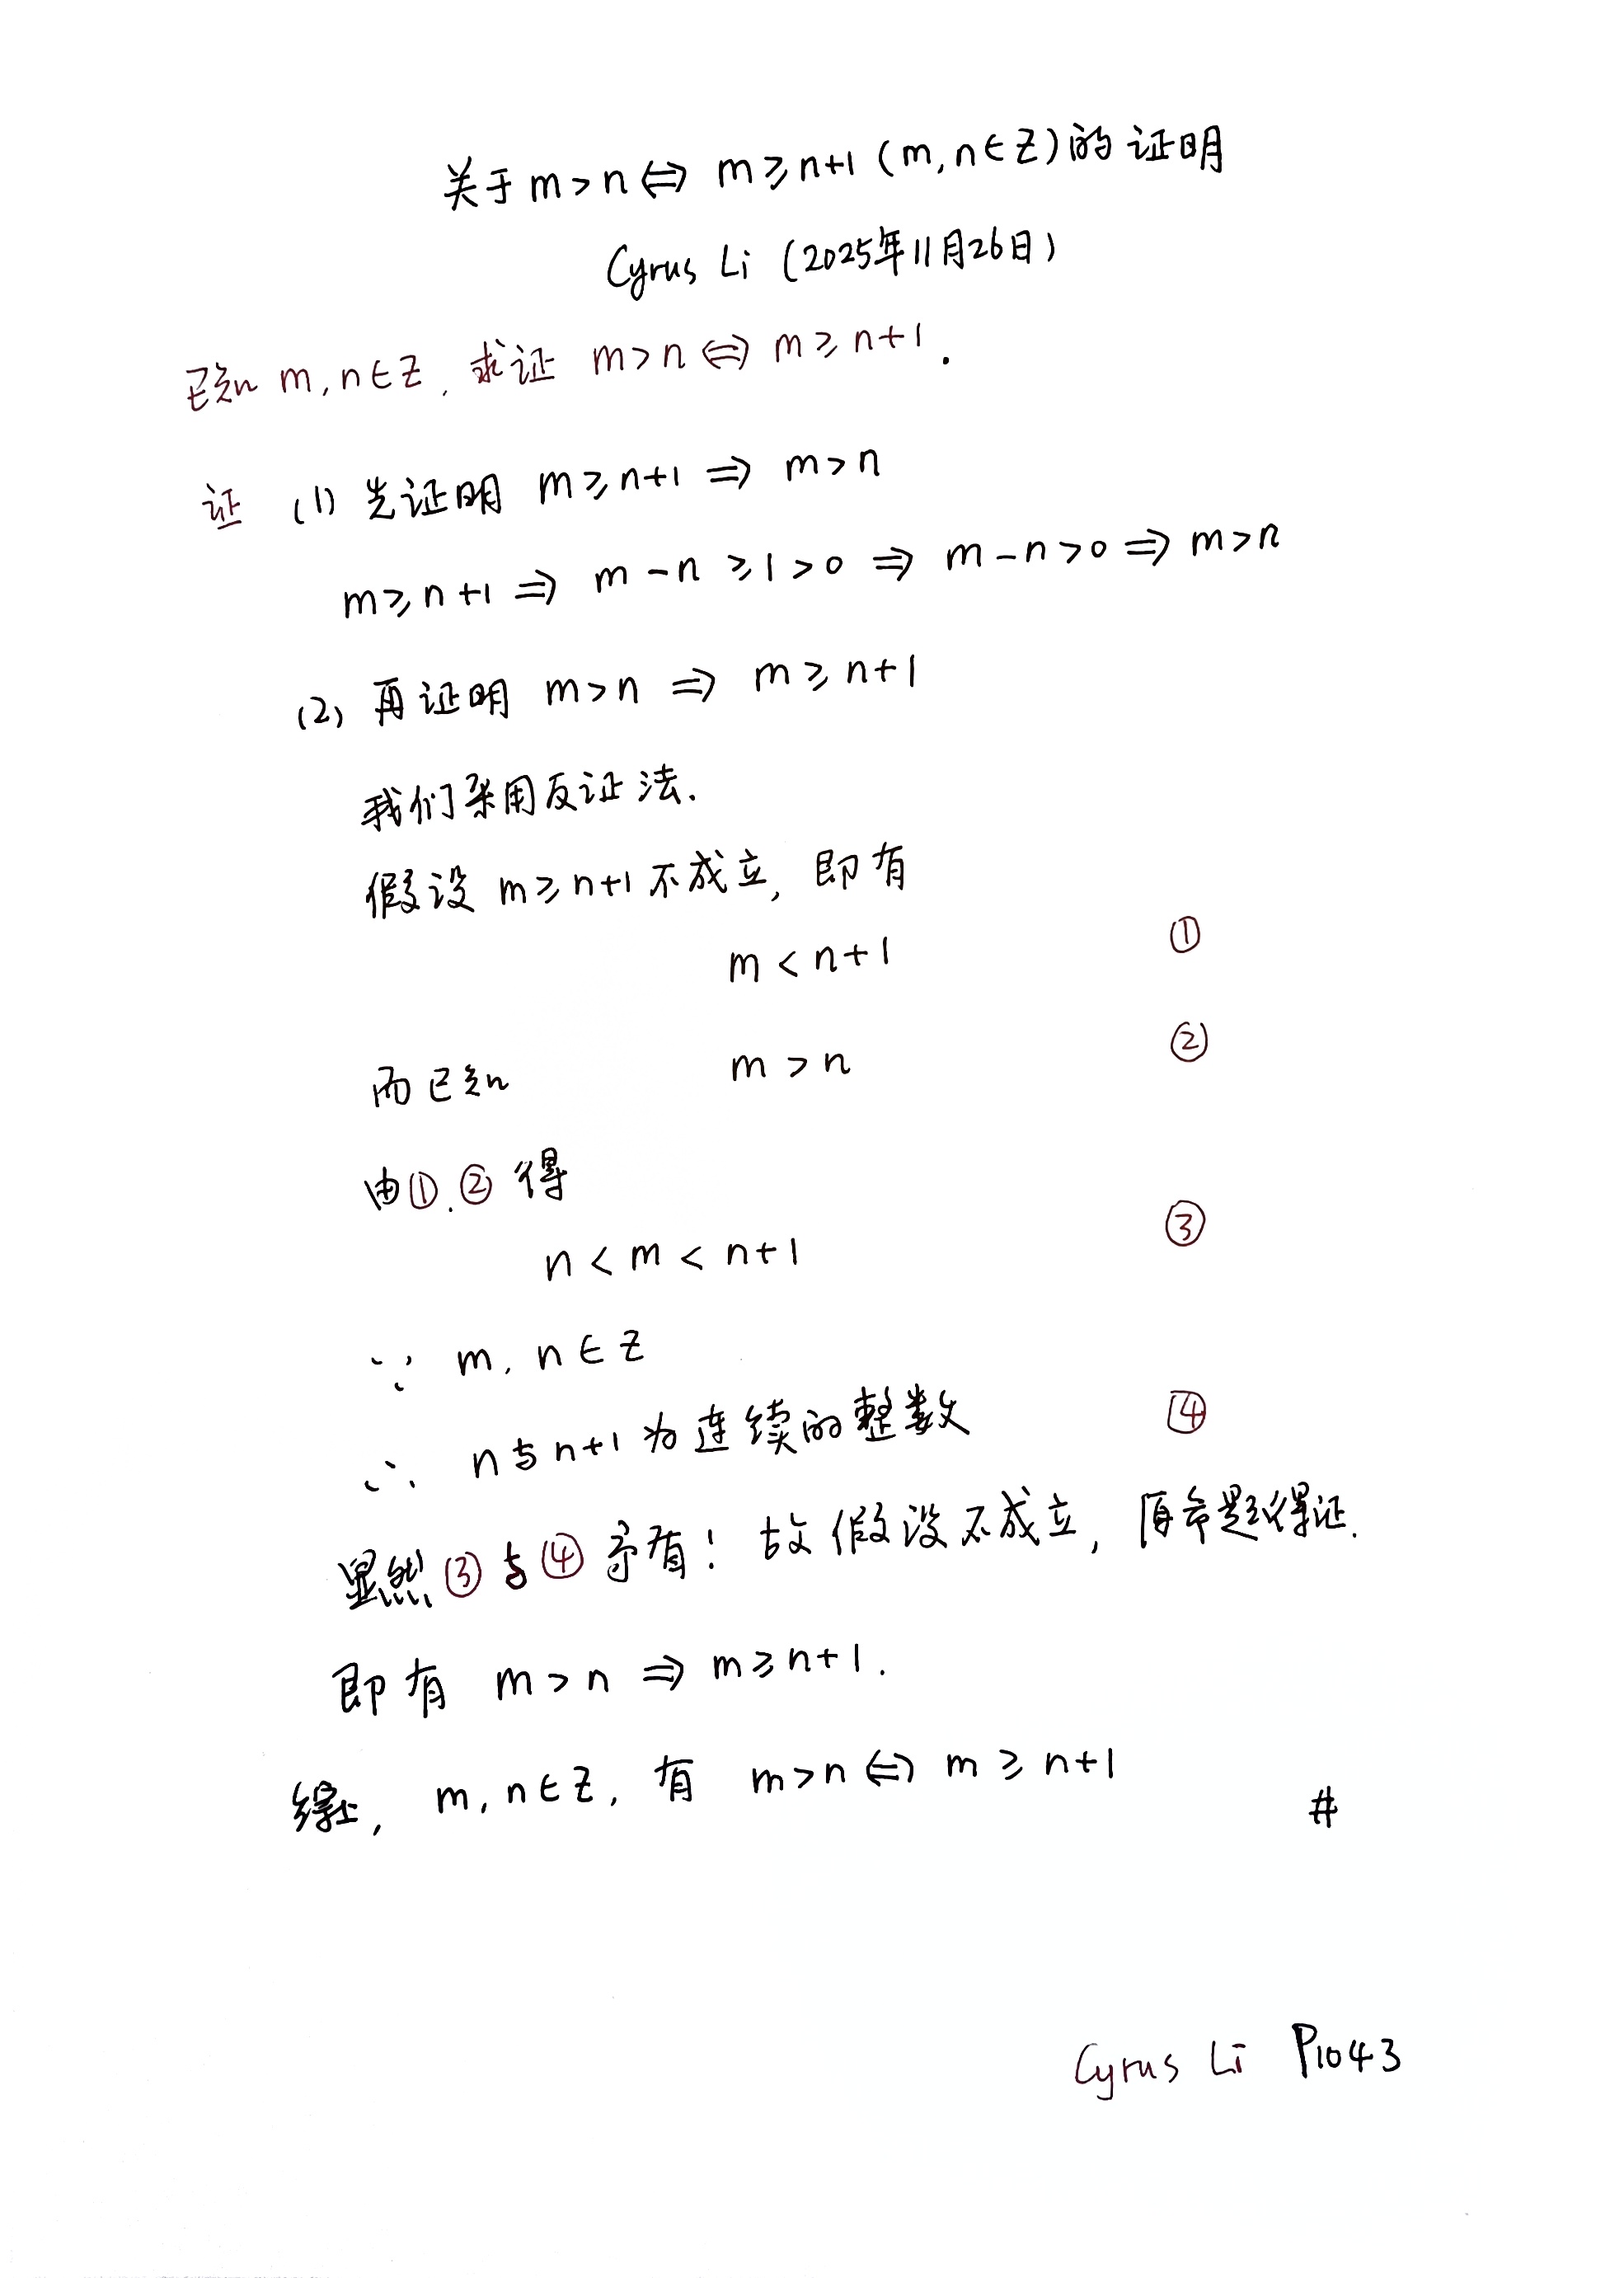 关于m>n⇔m≥n+1(m,n∈Z)的证明
Cyrus Li (2025年11月26日)
已知 m,n∈Z,求证 m>n⇔m≥n+1.
证 (1) 先证明 m≥n+1⇒m>n
m≥n+1⇒m-n≥1>0⇒m-n>0⇒m>n
(2) 再证明 m>n⇒m≥n+1
我们采用反证法.
假设 m≥n+1不成立,即有
m<n+1 ①
而已知 m>n ②
由①.②得
n<m<n+1 ③
∵ m,n∈Z
∴ n与n+1为连续的整数 ④
显然③与④矛盾!故假设不成立,原命题得证.
即有 m>n⇒m≥n+1.
综上, m,n∈Z,有 m>n⇔m≥n+1 #
Cyrus Li P1043